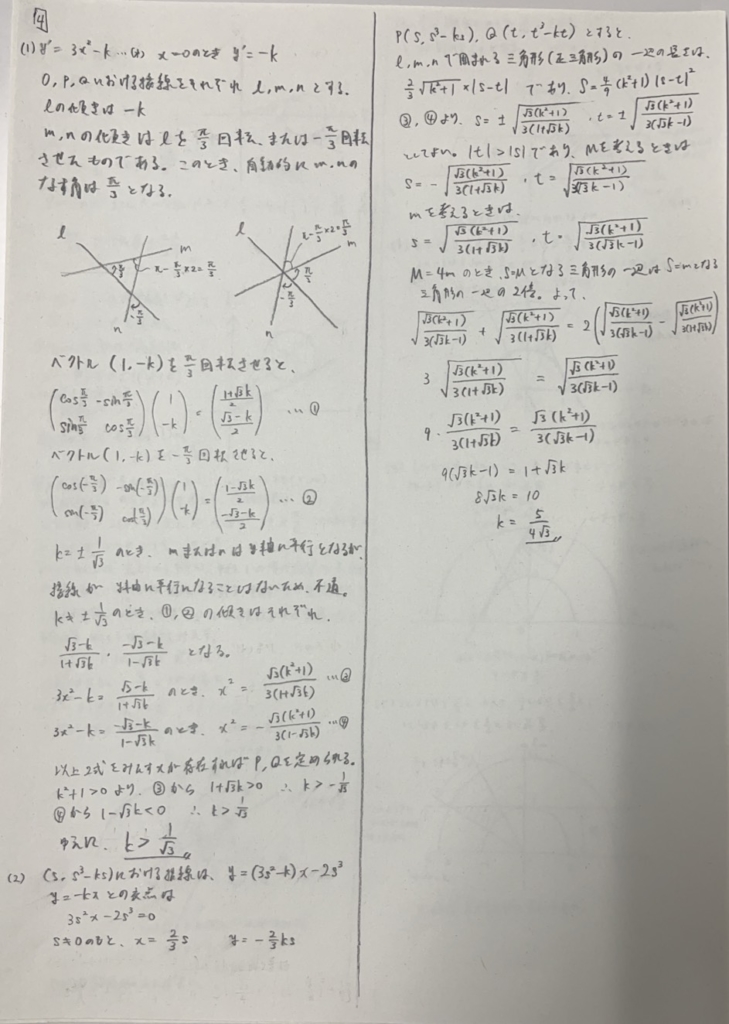 4
(1) y' = 3x²-k …(*) x=0のとき y' = -k
O, P, Qにおける接線をそれぞれ l, m, n とする。
lの傾きは -k
m, nの傾きは lを π/3 回転、または -π/3 回転
させたものである。このとき、自動的に m, nの
なす角は π/3 となる。
l
m
n
π/3
π-π/3×2=π/3
-π/3
l
m
n
π-π/3×2=π/3
π/3
-π/3
ベクトル (1, -k) を π/3 回転させると、
(cosπ/3 -sinπ/3 sinπ/3 cosπ/3)(1 -k) = ((1+√3k)/2 (√3-k)/2) …①
ベクトル (1, -k) を -π/3 回転させると、
(cos(-π/3) -sin(-π/3) sin(-π/3) cos(π/3))(1 -k) = ((1-√3k)/2 (-√3-k)/2) …②
k = ± 1/√3 のとき、mまたはnはy軸に平行となるが、
接線がy軸に平行になることはないため、不適。
k ≠ ± 1/√3 のとき、①, ②の傾きはそれぞれ、
(√3-k)/(1+√3k) , (-√3-k)/(1-√3k) となる。
3x²-k = (√3-k)/(1+√3k) のとき、x² = √3(k²+1)/3(1+√3k) …③
3x²-k = (-√3-k)/(1-√3k) のとき、x² = -√3(k²+1)/3(1-√3k) …④
以上2式をみたすxが存在すればP, Qを定められる。
k²+1>0 より、③から 1+√3k>0 ∴ k > -1/√3
④から 1-√3k<0 ∴ k > 1/√3
ゆえに、k > 1/√3
(2) (s, s³-ks)における接線は、y = (3s²-k)x - 2s³
y = -kx との交点は
3s²x - 2s³ = 0
s≠0のもと、x = 2/3 s y = -2/3 ks
P(s, s³-ks), Q(t, t³-kt) とすると、
l, m, n で囲まれる三角形(正三角形)の一辺の長さは、
2/3 √k²+1 × |s-t| であり、S = 4/9 (k²+1)|s-t|²
③, ④より、s = ± √(√3(k²+1)/3(1+√3k)) , t = ± √(√3(k²+1)/3(√3k-1))
としてよい。|t|>|s| であり、Mを考えるときは
s = -√(√3(k²+1)/3(1+√3k)) , t = √(√3(k²+1)/3(√3k-1))
mを考えるときは、
s = √(√3(k²+1)/3(1+√3k)) , t = √(√3(k²+1)/3(√3k-1))
M = 4m のとき、S=Mとなる三角形の一辺は S=mとなる
三角形の一辺の2倍。よって、
√(√3(k²+1)/3(√3k-1)) + √(√3(k²+1)/3(1+√3k)) = 2(√(√3(k²+1)/3(√3k-1)) - √(√3(k²+1)/3(1+√3k)))
3 √(√3(k²+1)/3(1+√3k)) = √(√3(k²+1)/3(√3k-1))
9 · √3(k²+1)/3(1+√3k) = √3(k²+1)/3(√3k-1)
9(√3k-1) = 1+√3k
8√3k = 10
k = 5/4√3